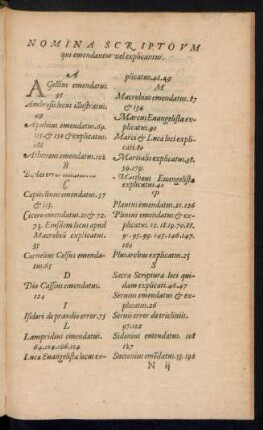 NOMINA SCRIPTOVM
qui emendantur vel explicantur.
A
AGellius emendatus.
95
Ambrosij locus illustratus.
49
Apuleius emendatus. 69.
115. & 130 & explicatus
188
Athenæus emendatus. 122
B
C
Capitolinus emendatus. 57
& 113.
Cicero emendatus. 21 & 72.
73. Eiusdem locus apud
Macrobiũ explicatus.
55
Cornelius Celsus emenda-
tus. 65
D
Dio Cassius emendatus.
124
I
Isidori de prandio error. 75
L
Lampridius emendatus.
64. 104. 106. 114
Luca Euangelista locus ex-
plicatus. 48. 49
M
Macrobius emendatus. 87
& 134
Marcus Euangelista ex-
plicatus. 90
Marci & Luca loci expli-
cati. 80
Martialis explicatus. 48.
59. 179.
Matthæus Euangelista
explicatus. 42
P
Planini emendatus. 21. 126
Plinius emendatus & ex-
plicatus. 17. 18. 19. 70. 88.
9. 95. 99. 145. 146. 147.
160
Plutarchus explicatus. 25
S
Sacra Scriptura loci qui-
dam explicati. 46. 47
Seruius emendatus & ex-
plicatus. 26
Seruii error de tricliniis.
97. 102
Sidonius emendatus. 108
127
Suetonius emẽdatus. 33. 198
N ij